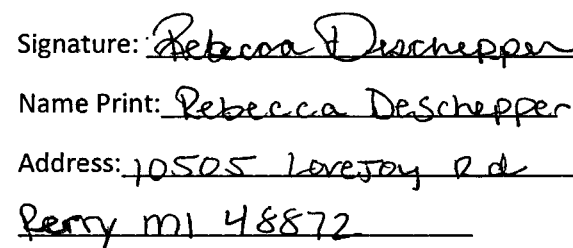 Signature: Rebecca Deschepper
Name Print: Rebecca Deschepper
Address: 10505 Lovejoy Rd
Perry MI 48872